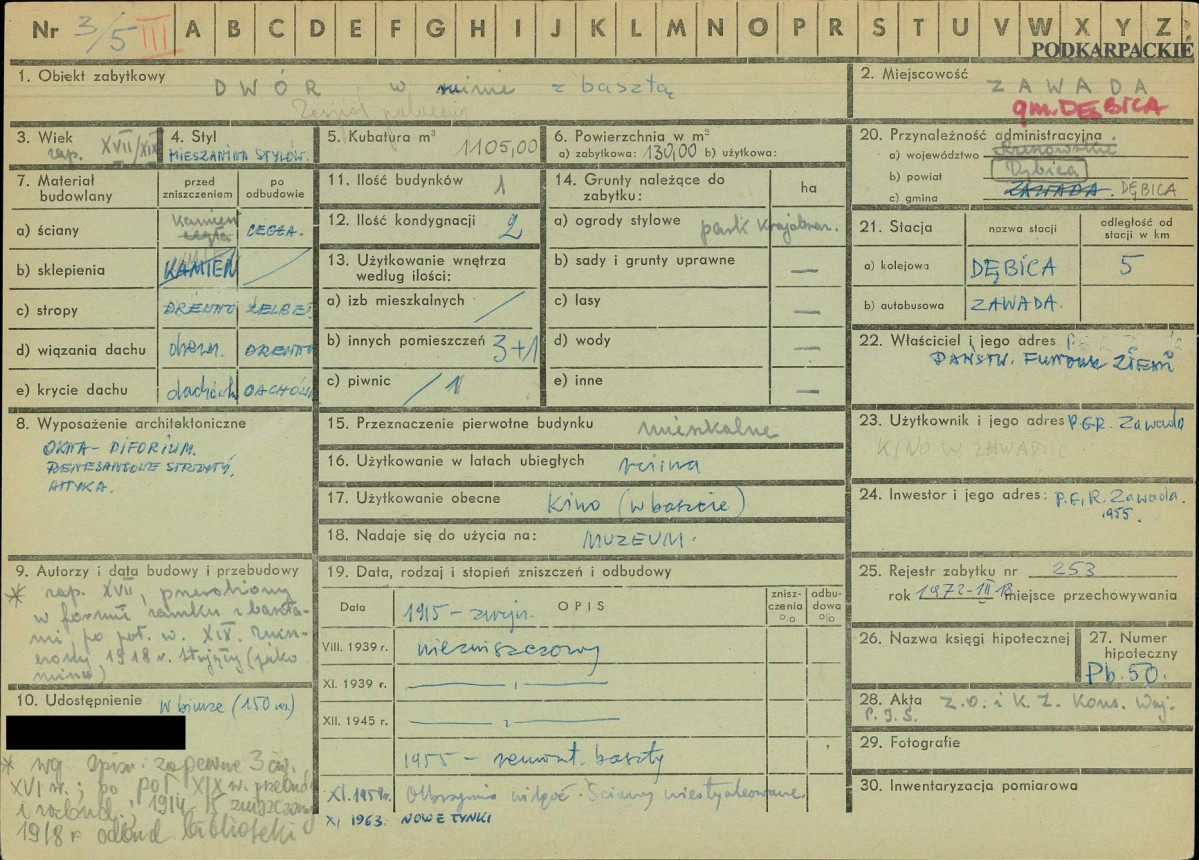 Nr 3/5 III A B C D E F G H I J K L M N O P R S T U V W X Y Z
PODKARPACKIE
1. Obiekt zabytkowy
DWÓR w ruinie z basztą
Zespół pałacowy
2. Miejscowość
ZAWADA
gm. DĘBICA
3. Wiek
zap. XVII/XIX
4. Styl
MIESZANINA STYLÓW.
5. Kubatura m³
1105,00
6. Powierzchnia w m²
a) zabytkowa: 130,00 b) użytkowa:
7. Materiał budowlany
przed zniszczeniem
po odbudowie
a) ściany kamień cegła CEGŁA.
b) sklepienia KAMIEŃ
c) stropy DREWNO ŻELBET
d) wiązania dachu drewn. DREWNO
e) krycie dachu dachówk DACHÓWK
8. Wyposażenie architektoniczne
OKNA - BIFORIUM.
RENESANSOWE STRZATY.
ATTYKA.
9. Autorzy i data budowy i przebudowy
* zap. XVII, przerobiony
w formie zamku z baszta-
mi po poł. w. XIX. Zniszczony
1918 r. (jako
ruina)
10. Udostępnienie
W biurze (150 m.)
* wg spisu: zapewne 3 ćw.
XVI w.; po poł XIX w. przebud
i rozbud., 1914-15 zniszczony
1918 r odbud biblioteki
11. Ilość budynków 1
12. Ilość kondygnacji 2
13. Użytkowanie wnętrza
według ilości:
a) izb mieszkalnych /
b) innych pomieszczeń 3+1
c) piwnic / 1
14. Grunty należące do
zabytku:
ha
a) ogrody stylowe park krajobraz.
b) sady i grunty uprawne —
c) lasy —
d) wody —
e) inne —
15. Przeznaczenie pierwotne budynku mieszkalne
16. Użytkowanie w latach ubiegłych ruina
17. Użytkowanie obecne Kino (w baszcie)
18. Nadaje się do użycia na: MUZEUM.
19. Data, rodzaj i stopień zniszczeń i odbudowy
Data
OPIS
znisz-
czenia
%
odbu-
dowa
%
1915 - zniszcz.
VIII. 1939 r. niezniszczony
XI. 1939 r. — ı —
XII. 1945 r. — ı —
1955 - remont. baszty
XI. 1958r. Olbrzymia wilgoć. Ściany
XI 1963. NOWE TYNKI
20. Przynależność administracyjna
a) województwo Rzeszowskie
b) powiat Dębica
c) gmina ZAWADA. DĘBICA
21. Stacja
nazwa stacji
odległość od
stacji w km
a) kolejowa DĘBICA 5
b) autobusowa ZAWADA.
22. Właściciel i jego adres
PAŃSTW. FUNDUSZ ZIEMI
23. Użytkownik i jego adres PGR. Zawada
KINO W ZAWADZIE
24. Inwestor i jego adres: P.G.R. Zawada.
1955.
25. Rejestr zabytku nr 253
rok 1972-III 18 miejsce przechowywania
26. Nazwa księgi hipotecznej
27. Numer
hipoteczny
Pb. 50.
28. Akta Z.O. i K.Z. Kons. Woj.
P.I.S.
29. Fotografie
30. Inwentaryzacja pomiarowa